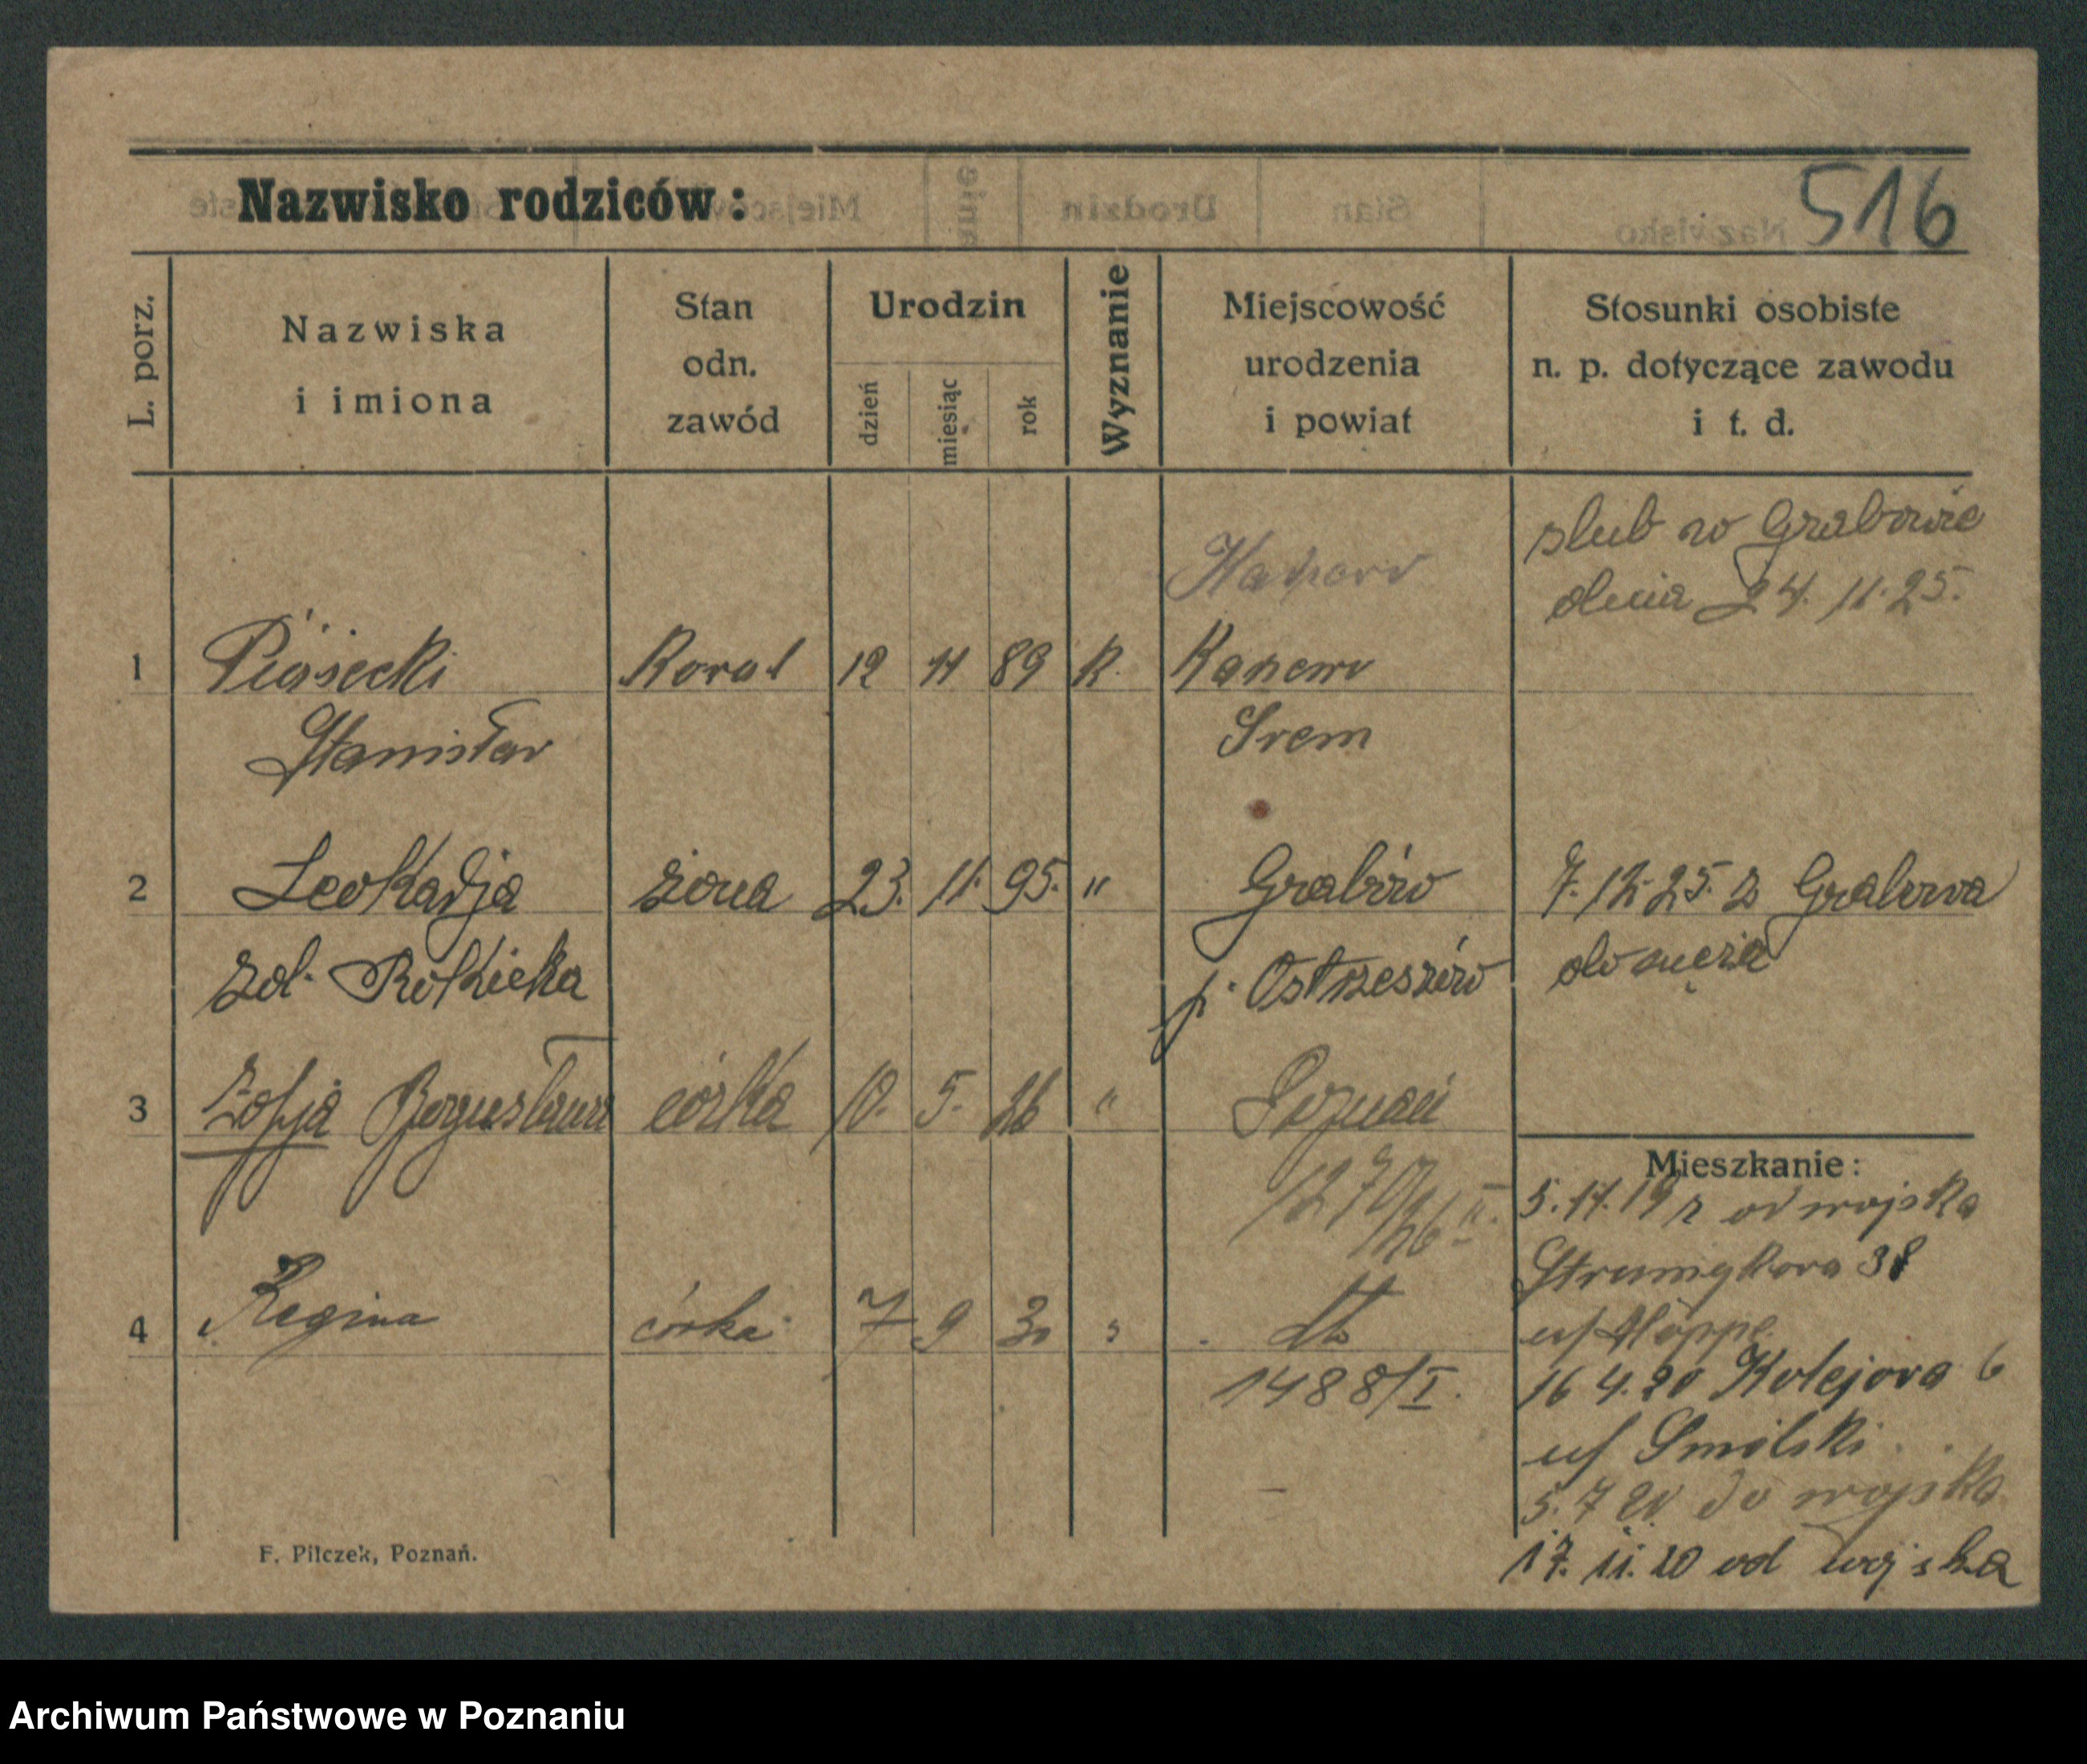 Nazwisko rodziców:
516
L. porz.
Nazwiska
i imiona
Stan
odn.
zawód
Urodzin
dzień
miesiąc
rok
Wyznanie
Miejscowość
urodzenia
i powiat
Stosunki osobiste
n. p. dotyczące zawodu
i t. d.
slub w Grabowie
dnia 24. 11. 25.
1 Piasecki Kowal 12 11 89 K.
Stanisław Srem
2 Leokadja żona 23. 11. 95. " Grabów 7. 12. 25. z Grabowa
zd. Rolnicka p. Ostrzeszów do męża
3 Zofja Bogusława córka 10. 5. 26 " Poznań
1270/26 II.
4 Regina córka 7 9 30 " dto
1488/I.
Mieszkanie:
5. 11. 19 r od wojska
Strumykowa 38
u/ Hoppe
16 4. 20 Kolejowa 6
u/ Smolski
5. 7 20 do wojska
17. 11. 20 od wojska
F. Pilczek, Poznań.
Archiwum Państwowe w Poznaniu